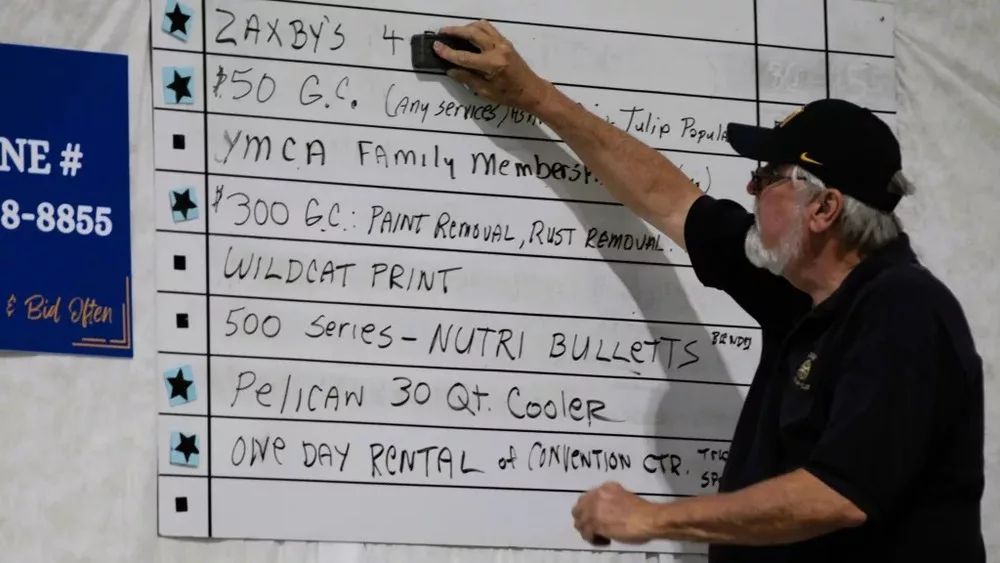 NE #
8-8855
& Bid Often
ZAXBY'S 4
$50 G.C. (Any services) Tulip Popula
YMCA FAmily Membersh
$300 G.C.: PAINT REMOVAL, RUST REMOVAL.
WILDCAT PRINT
500 Series - NUTRI BULLETTS
PelICAN 30 Qt. CooleR
ONE DAY RENTAL of CONVENTION CTR.